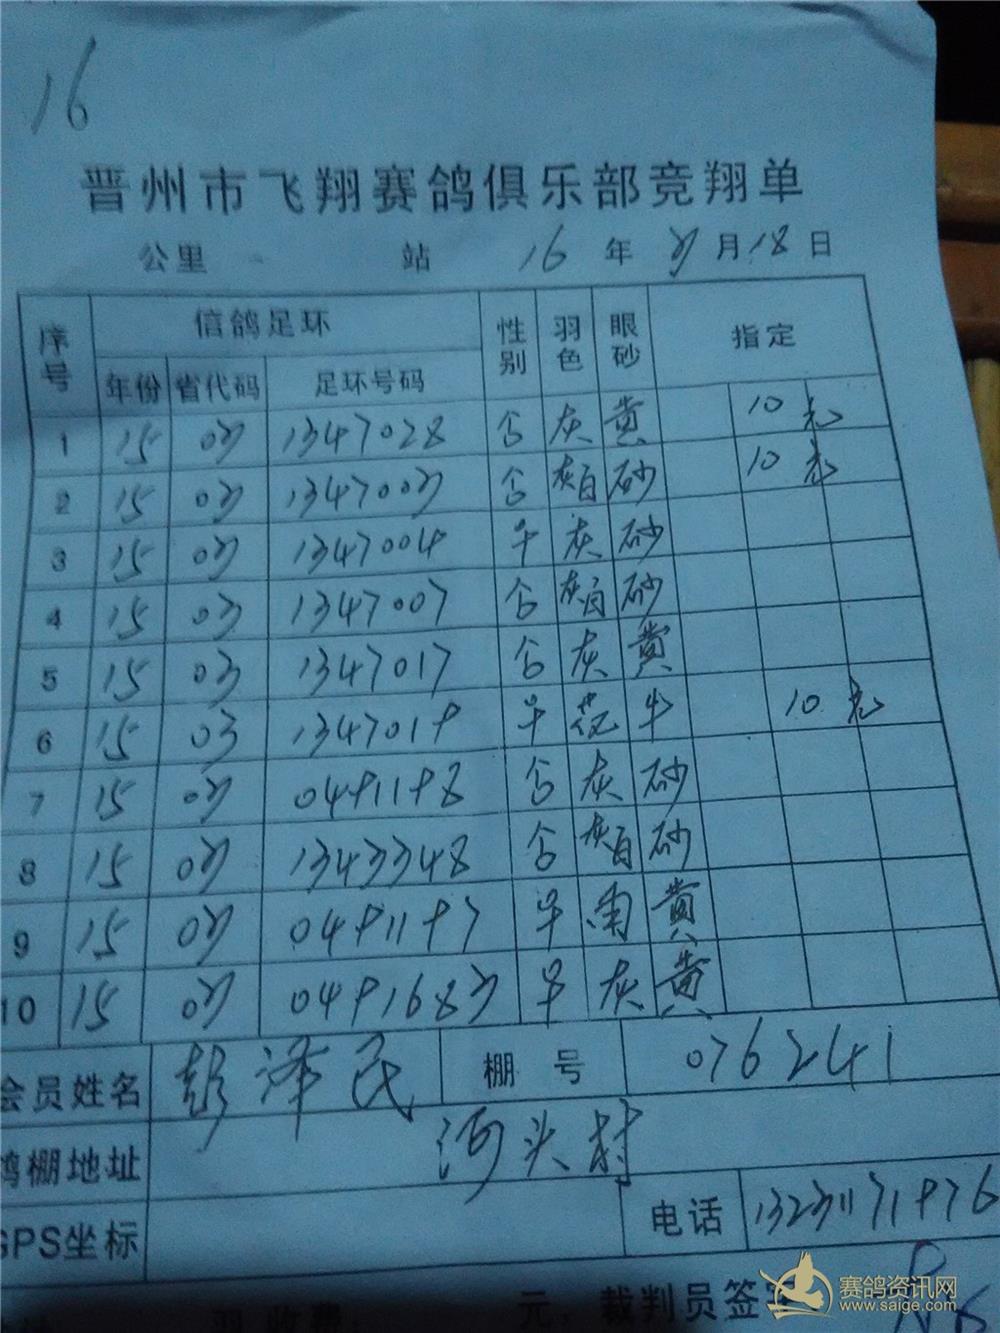 16
晋州市飞翔赛鸽俱乐部竞翔单
公里 站 16 年 3 月 18 日
序号 信鸽足环 性别 羽色 眼砂 指定
年份 省代码 足环号码
1 15 03 1347028 合 灰 黄 10 元
2 15 03 1347003 合 灰白 砂 10 元
3 15 03 1347004 早 灰 砂
4 15 03 1347007 合 灰白 砂
5 15 03 1347017 合 灰 黄
6 15 03 1347019 早 花 牛 10 元
7 15 03 0491198 合 灰 砂
8 15 03 1343348 合 灰白 砂
9 15 03 0491197 早 雨 黄
10 15 03 0491683 早 灰 黄
会员姓名 彭泽民 棚号 0762241
鸽棚地址 河头村
GPS坐标 电话 13231171976
羽 收费: 元, 裁判员签字
赛鸽资讯网
www.saige.com